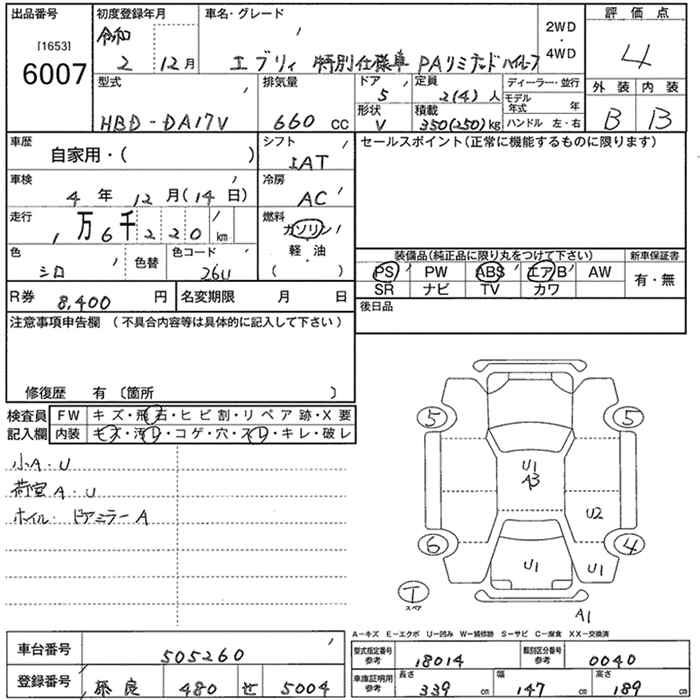 出品番号 初度登録年月 車名・グレード 2WD・4WD 評価点
[1653] 6007 令和 2 12月 エブリィ 特別仕様車 PAリミテッドハイルーフ 4
型式 排気量 ドア 5 定員 2(4)人 ディーラー・並行 外装 内装
HBD-DA17V 660 CC 形状 V 積載 350(250)kg モデル年式 年 ハンドル 左・右 B B
車歴 自家用・( ) シフト AT セールスポイント(正常に機能するものに限ります)
車検 4年 12月(14日) 冷房 AC
走行 1万6千220km 燃料 ガソリン 軽・油 ( )
色 シロ 色替 色コード 26U
装備品(純正品に限り丸をつけて下さい) 新車保証書
PS PW ABS エアB AW 有・無
SR ナビ TV カワ
R券 8,400円 名変期限 月 日 後日品
注意事項申告欄 (不具合内容等は具体的に記入して下さい)
修復歴 有 〔箇所 〕
検査員 FW キズ・飛石・ヒビ割・リペア跡・X要
記入欄 内装 キズ・汚レ・コゲ・穴・スレ・キレ・破レ
小A・U
荷室A・U
ホイル・ドアミラーA
5 5
U1
A3
U2
6 4
U1 U1
T
スペア
A1
A-キズ E-エクボ U-凹み W-補修跡 S-サビ C-腐食 XX-交換済
車台番号 505260 型式指定番号 参考 18014 類別区分番号 参考 0040
登録番号 奈良 480 せ 5004 車庫証明用 参考 長さ 339cm 幅 147cm 高さ 189cm